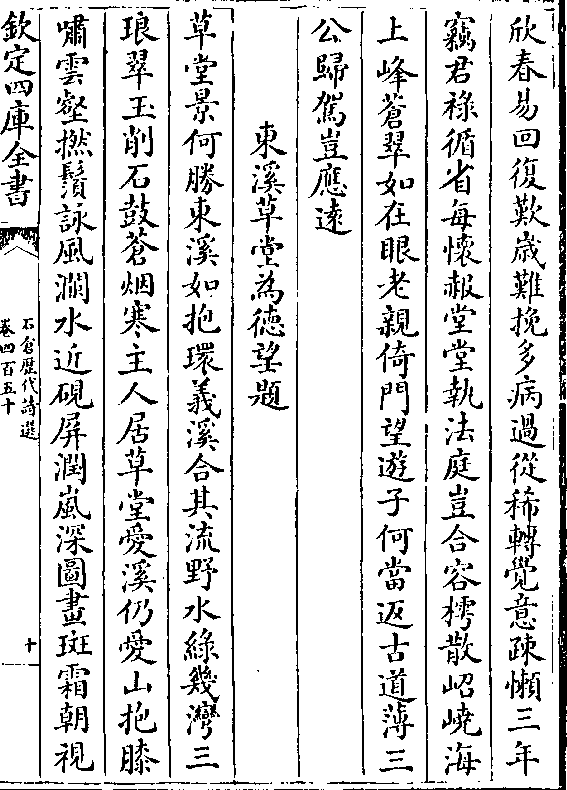 欣春易回復歎歳難挽多病過從稀轉覺意疎懶三年
竊君祿循省每懷赧堂堂執法庭豈合容樗散岧嶢海
上峰蒼翠如在眼老親倚門望遊子何當返古道薄三
公歸駕豈應逺
東溪草堂為徳望題
草堂景何勝東溪如抱環義溪合其流野水綠幾灣三
琅翠玉削石鼓蒼烟寒主人居草堂愛溪仍愛山抱膝
嘯雲壑撚鬚詠風澗水近硯屏潤嵐深圖畫斑霜朝視
欽定四庫全書
石倉歴代詩選
卷四百五十
十